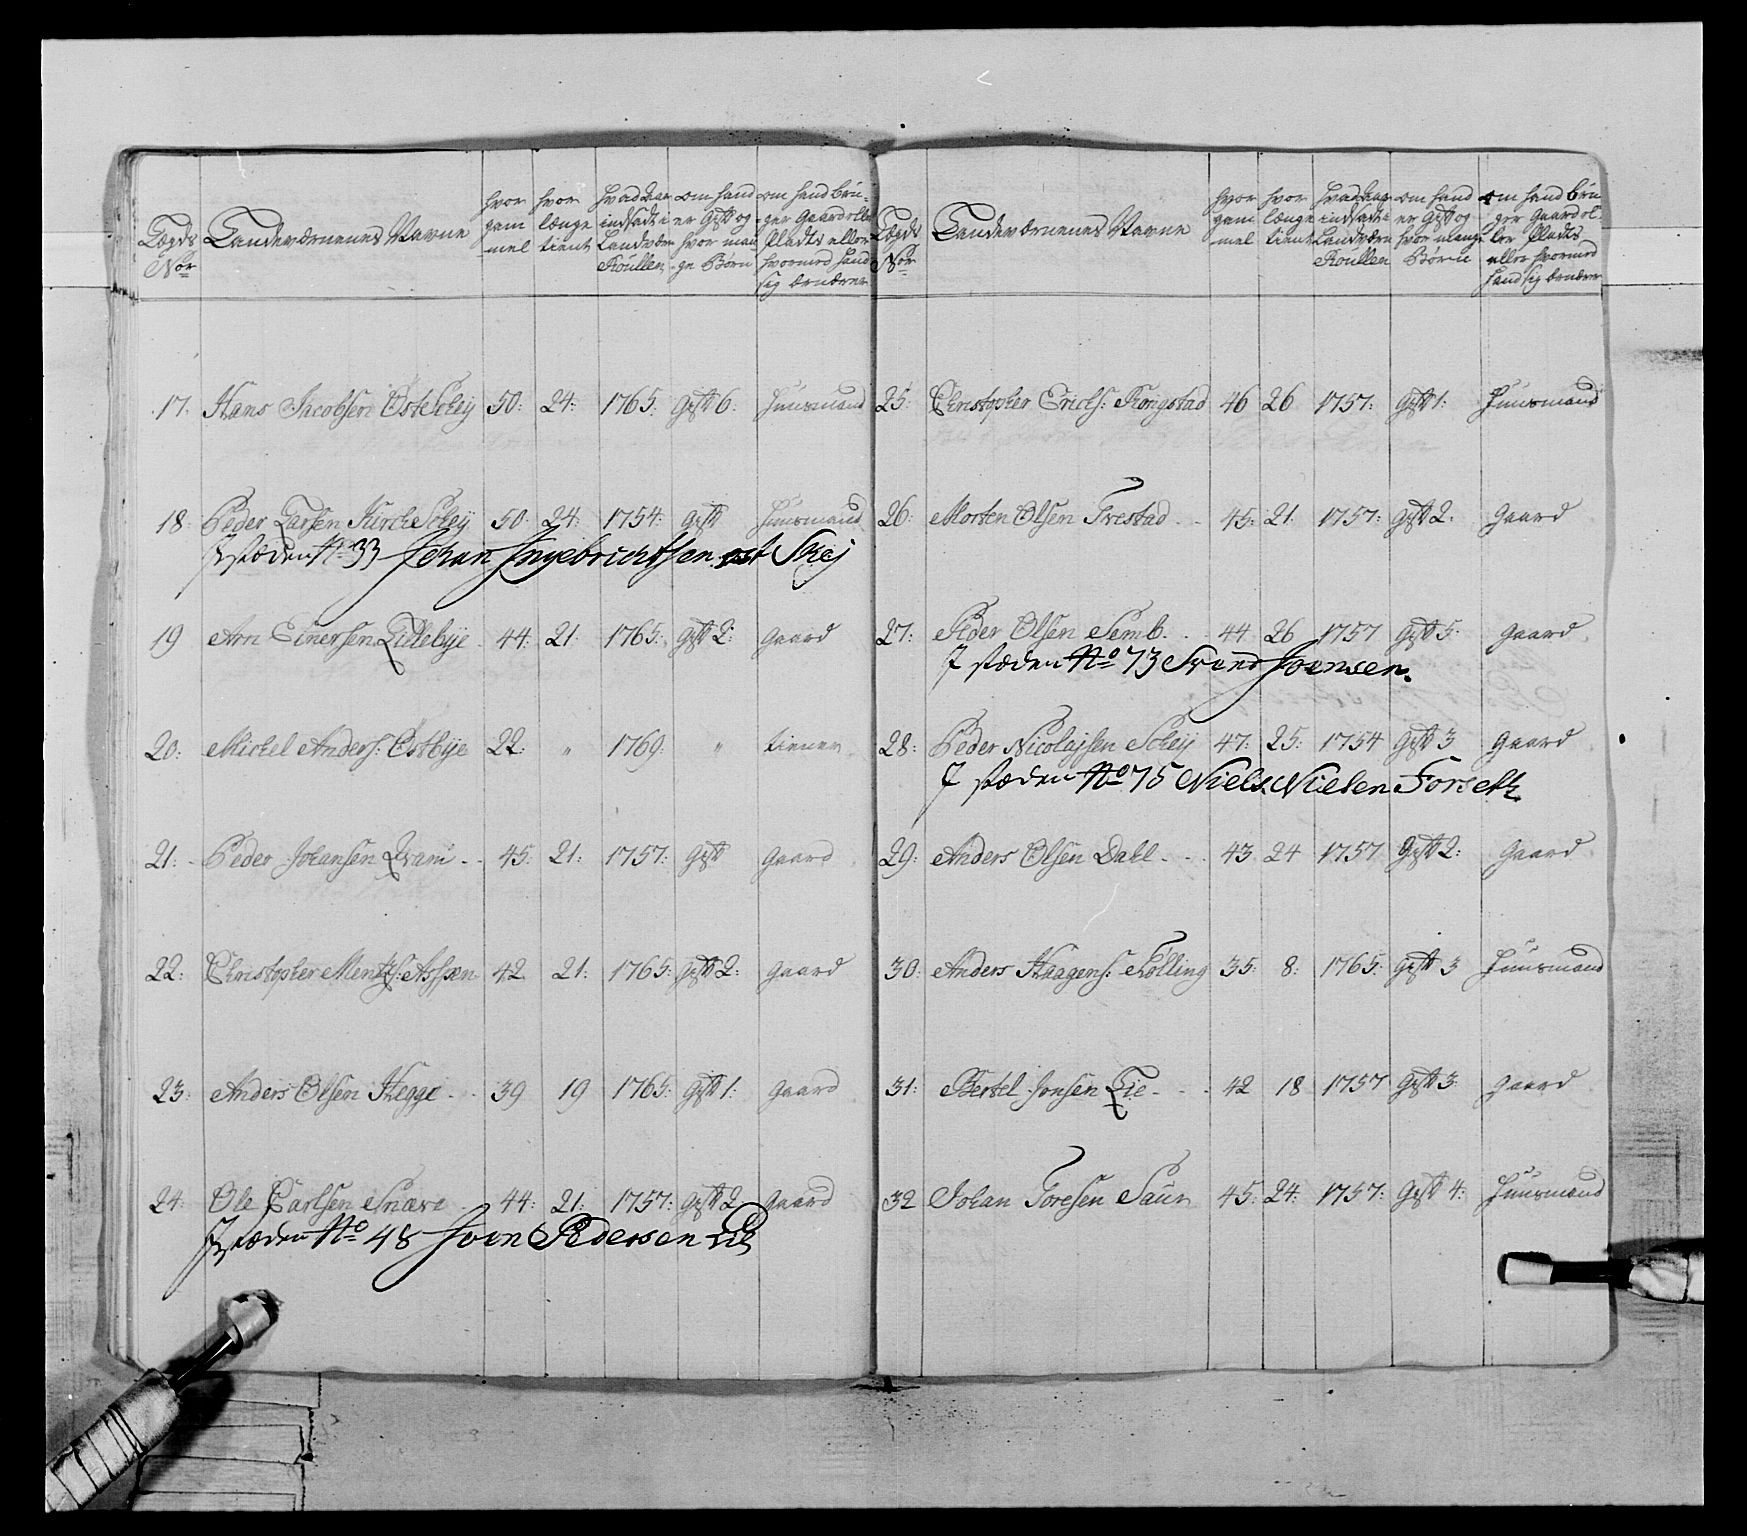 Lægds Nor
Landeværnenes Navne
hvor gam mel
hvor længe tient
hvad aar indsadt i Landværn Roullen
om hand er Gift og hvor man ge Børn
om hand brü ger Gaard eller Pladts eller hvormed hand sig ernærer
17. Hans Jacobsen Øste Schey 50: 24: 1765: Gift 6: Huusmand
18: Peder Larsen Kirche Schey 50: 24: 1754: Gift Huusmand
I stæden No 33 Johan Ingebrichtsen øst Skej
19 Arn Einersen Lillebye 44: 21 1765: Gift 2: Gaard
20: Michel Anders: Østbye 22: " 1769: " tiener
21: Peder Johansen Qvam 45: 21: 1757: Gift Gaard
22: Christopher Mentzs: Assen 42 21: 1765: Gift 2: Gaard
23: Anders Olsen Hegge 39 19 1765: Gift 1: Gaard
24: Ole Carlsen Snæve 44: 21: 1757: Gift 2 Gaard
I stæden No 48 Joen Pedersen
Lægds Nor
Landeværnenes Navne
hvor gam mel
hvor længe tient
hvad aar indsadt i Landværn Roullen
om hand er Gift og hvor mange Børn
om hand brü ger Gaard el ler Pladts eller hvormed hand sig ernærer
25: Christopher Erichs: Rongstad 46 26 1757: Gift 1: Huusmand
26: Morten Olsen Frestad 45: 21 1757: Gift 2: Gaard
27: Peder Olsen Semb 44 26 1757 Gift 5: Gaard
I stæden No 73 Svend Joensen.
28: Peder Nicolajsen Schey 47: 25: 1754 Gift 3 Gaard
I stæden No 75 Niels Nielsen Forseth
29: Anders Olsen Dahl 43 24 1757 Gift 2: Gaard
30: Anders Haagens: Kolling 35: 8: 1765: Gift 3 Huusmand
31: Bertel Jonsen Lie 42 18 1757 Gift 3 Gaard
32 Johan Toresen Saur 45: 24: 1757: Gift 4: Huusmand